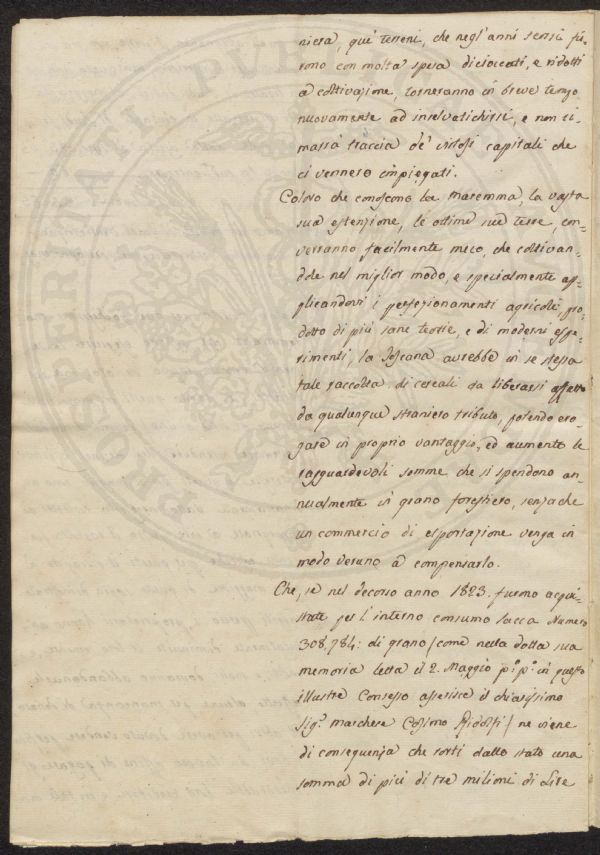 niera, que' terreni, che negl'anni scorsi fu-
rono con molta spesa dicioccati, e ridotti
a coltivazione, torneranno in breve tempo
nuovamente ad insalvatichirsi, e non ri-
marrà traccia de' vistosi capitali che
ci vennero impiegati.
Coloro che conoscono la maremma, la vasta
sua estenzione, le ottime sue terre, con-
verranno facilmente meco, che coltivan-
dole nel miglior modo, e specialmente ap-
plicandovi i perfezionamenti agricoli, pro-
dotto di più sane teorie, e di moderni espe-
rimenti, la Toscana avrebbe in se stessa
tale raccolta di cereali da liberarsi affatto
da qualunque straniero tributo, potendo ero-
gare in proprio vantaggio, ed aumento le
ragguardevoli somme che si spendono an-
nualmente in grano forestiero, senza che
un commercio di esportazione venga in
modo veruno a compensarlo.
Che, se nel decorso anno 1823. furono acqui-
state per l'interno consumo sacca Numero
308,784: di grano (come nella dotta sua
memoria letta il 2. Maggio p.º p.º in questo
illustre Consesso asserisce il chiarissimo
Sig.r marchese Cosimo Ridolfi) ne viene
di conseguenza che sortì dallo stato una
somma di più di tre milioni di Lire
PROSPERITATI PVB